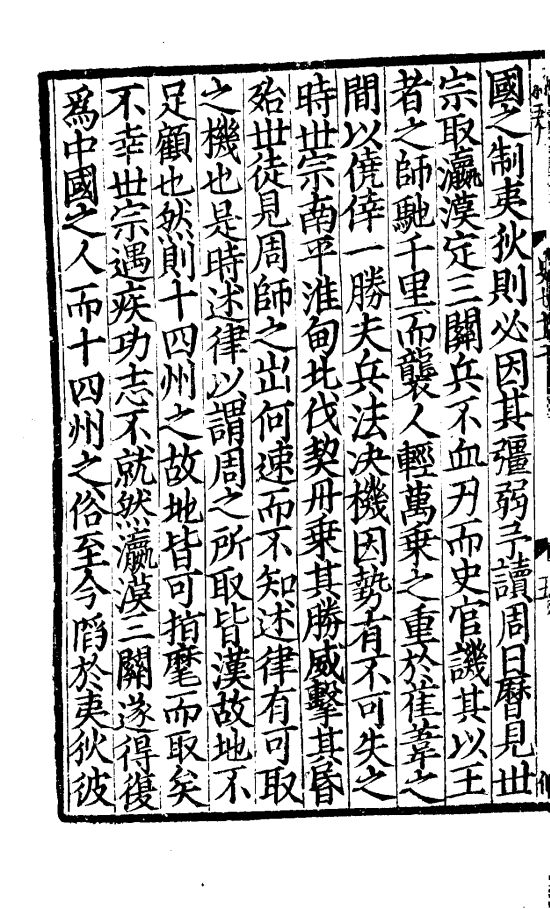 國之制夷狄則必因其彊弱予讀周日曆見世
宗取瀛漠定三關兵不血刃而史官譏其以王
者之師馳千里而襲人輕萬乗之重於萑葦之
間以僥倖一勝夫兵法决機因勢有不可失之
時世宗南平淮甸北伐契丹乗其勝威擊其昬
殆世徒見周師之出何速而不知述律有可取
之機也是時述律以謂周之所取皆漢故地不
足顧也然則十四州之故地皆可指麾而取矣
不幸世宗遇疾功志不就然瀛漠三關遂得復
爲中國之人而十四州之俗至今䧟於夷狄彼